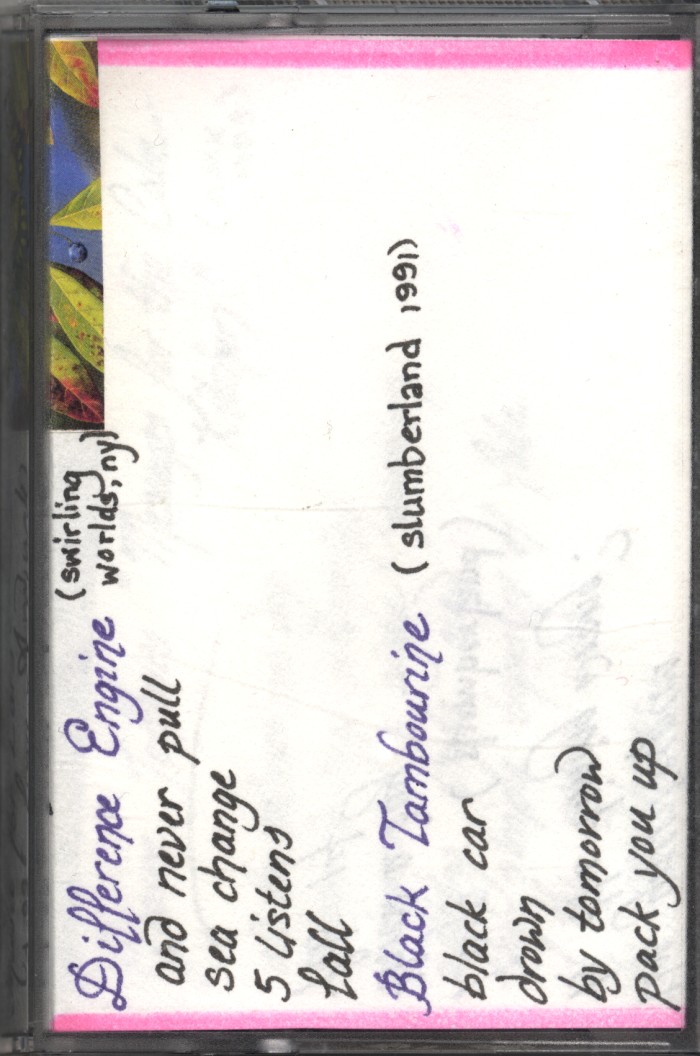 Difference Engine (swirling worlds, ny)
and never pull
sea change
5 listens
fall
Black Tambourine (slumberland 1991)
black car
drown
by tomorrow
pack you up